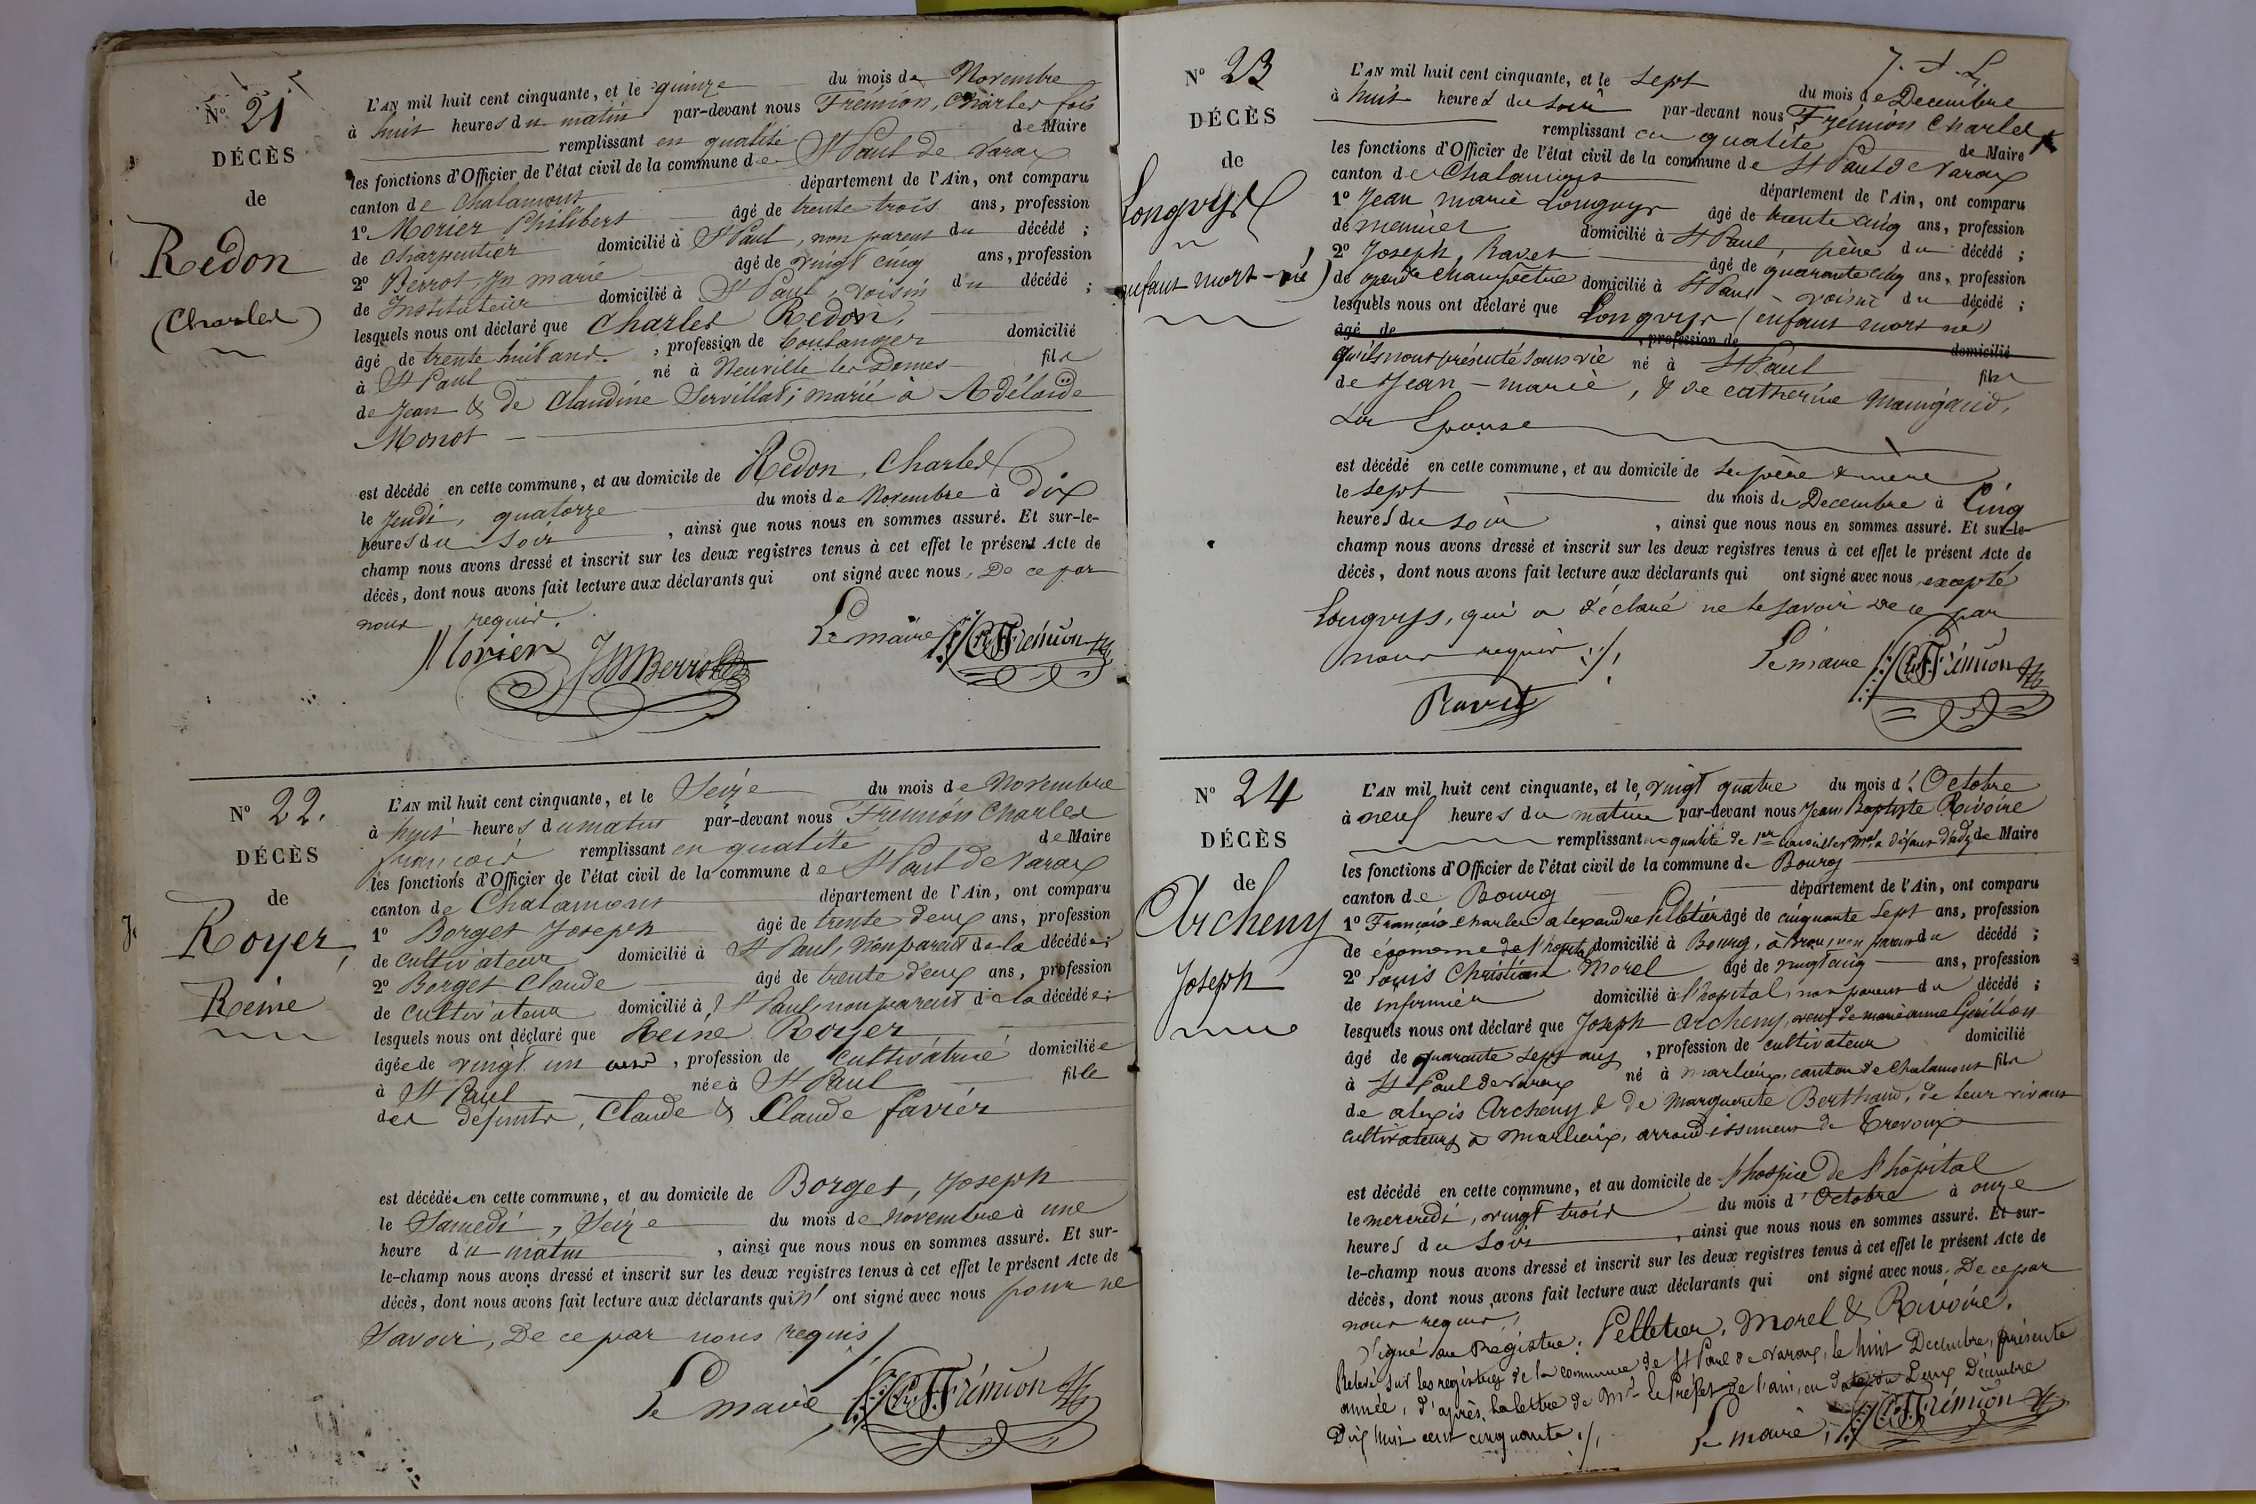 N° 21
DÉCÈS
de
Redon
(Charles)
L'AN mil huit cent cinquante, et le quinze du mois de Novembre
à huit heures du matin par-devant nous Frémion, Charles fois
remplissant en qualité de Maire
les fonctions d'Officier de l'état civil de la commune de St Paul de Varax
canton de Chalamont département de l'Ain, ont comparu
1° Morier Philibert âgé de trente trois ans, profession
de Charpentier domicilié à St Paul, non parent du décédé ;
2° Berrot Jn marie âgé de vingt cinq ans, profession
de Instituteur domicilié à St Paul, voisin du décédé ;
lesquels nous ont déclaré que Charles Redon,
âgé de trente huit ans. , profession de boulanger domicilié
à St Paul né à Neuville les Dames fils
de Jean & de Claudine Servillat ; marié à Adélaïde
Monot
est décédé en cette commune, et au domicile de Redon, Charles
le Jeudi, quatorze du mois de Novembre à Dix
heures du soir , ainsi que nous nous en sommes assuré. Et sur-le-
champ nous avons dressé et inscrit sur les deux registres tenus à cet effet le présent Acte de
décès, dont nous avons fait lecture aux déclarants qui ont signé avec nous, De ce par
nous requis.
Morier JM Berrot Le maire Ch. F. Frémion
N° 22.
DÉCÈS
de
Royer,
Reine
L'AN mil huit cent cinquante, et le Seize du mois de Novembre
à huit heures du matin par-devant nous Frémion Charles
françois remplissant en qualité de Maire
les fonctions d'Officier de l'état civil de la commune de St Paul de Varax
canton de Chalamont département de l'Ain, ont comparu
1° Borget Joseph âgé de trente deux ans, profession
de cultivateur domicilié à St Paul, non parent de la décédée ;
2° Borget Claude âgé de trente deux ans, profession
de cultivateur domicilié à St Paul, non parent de la décédée ;
lesquels nous ont déclaré que Reine Royer
âgée de vingt un ans , profession de cultivatrice domiciliée
à St Paul née à St Paul fille
des défunts, Claude & Claude favier
est décédée en cette commune, et au domicile de Borget, Joseph
le Samedi, Seize du mois de novembre à une
heure du matin , ainsi que nous nous en sommes assuré. Et sur-
le-champ nous avons dressé et inscrit sur les deux registres tenus à cet effet le présent Acte de
décès, dont nous avons fait lecture aux déclarants qui n' ont signé avec nous pour ne
Savoir, De ce par nous requis
Le maire Ch. F. Frémion
N° 23
DÉCÈS
de
Longvyr
(enfant mort-né)
L'AN mil huit cent cinquante, et le sept du mois de Decembre
à huit heures du soir par-devant nous Frémion Charles
remplissant en qualité de Maire
les fonctions d'Officier de l'état civil de la commune de St Paul de Varax
canton de Chalamont département de l'Ain, ont comparu
1° Jean marie Longvyr âgé de trente cinq ans, profession
de meunier domicilié à St Paul, père du décédé ;
2° Joseph Ravet âgé de quarante cinq ans, profession
de garde champêtre domicilié à St Paul voisin du décédé ;
lesquels nous ont déclaré que Longvyr (enfant mort né)
âgé de , profession de domicilié
qu'ils nous présenté sans vie né à St Paul fils
de Jean-marie, & de catherine Maingaud,
son Epouse
est décédé en cette commune, et au domicile de ses père & mère
le sept du mois de Decembre à Cinq
heures du soir , ainsi que nous nous en sommes assuré. Et sur-le-
champ nous avons dressé et inscrit sur les deux registres tenus à cet effet le présent Acte de
décès, dont nous avons fait lecture aux déclarants qui ont signé avec nous excepté
Longvyr, qui a déclaré ne le savoir De ce par
nous requis
Le maire Ch. F. Frémion
Ravet
N° 24
DÉCÈS
de
Archeny
Joseph
L'AN mil huit cent cinquante, et le vingt quatre du mois d'Octobre
à neuf heures du matin par-devant nous Jean Baptiste Rivoire
remplissant en qualité de 1er conseiller Mal à défaut d'adj de Maire
les fonctions d'Officier de l'état civil de la commune de Bourg
canton de Bourg département de l'Ain, ont comparu
1° François Charles alexandre Pelletier âgé de cinquante sept ans, profession
de économe de l'hopital domicilié à Bourg, à Brou, non parent du décédé ;
2° Louis Christian Morel âgé de vingt cinq ans, profession
de infirmier domicilié à l'hopital, non parent du décédé ;
lesquels nous ont déclaré que Joseph Archeny, veuf de marie anne
âgé de quarante sept ans , profession de cultivateur domicilié
à St Paul de Varax né à marlieux, canton de Chalamont fils
de alexis Archeny & de Marguerite Berthaud, de leur vivant
cultivateurs à Marlieux, arrondissement de Trevoux
est décédé en cette commune, et au domicile de l'hospice de l'hôpital
le mercredi, vingt trois du mois d'Octobre à onze
heures du soir , ainsi que nous nous en sommes assuré. Et sur-
le-champ nous avons dressé et inscrit sur les deux registres tenus à cet effet le présent Acte de
décès, dont nous avons fait lecture aux déclarants qui ont signé avec nous, De ce par
nous requis,
Signé au Registre : Pelletier, Morel & Rivoire.
Relevé sur les registres de la commune de St Paul de Varax, le huit Decembre, présente
année, d'après la lettre de Mr le Préfet de l'ain, en date du Deux Décembre
Dix huit cent cinquante
Le maire, Ch. F. Frémion